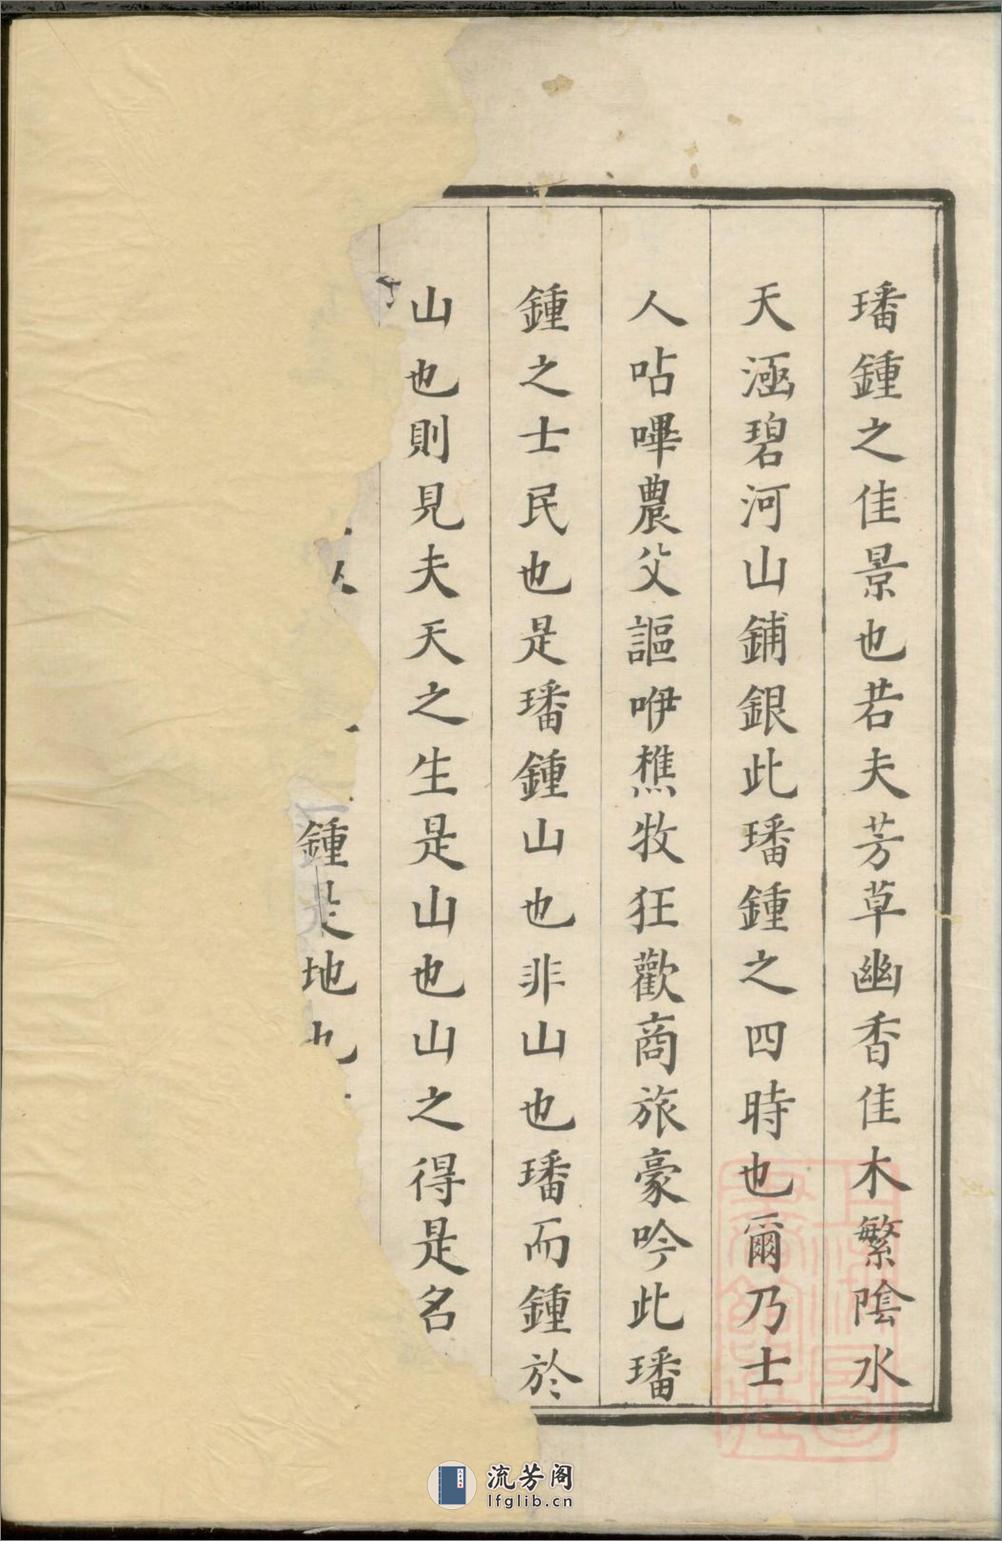 璠鍾之佳景也若夫芳草幽香佳木繁陰水
天涵碧河山鋪銀此璠鍾之四時也爾乃士
人呫嗶農父謳咿樵牧狂歡商旅豪吟此璠
鍾之士民也是璠鍾山也非山也璠而鍾於
山也則見夫天之生是山也山之得是名
鍾是地也
流芳阁
lfglib.cn